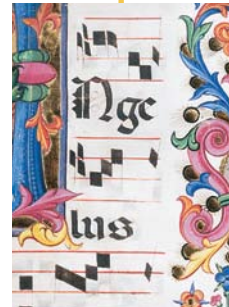 Nge
lus